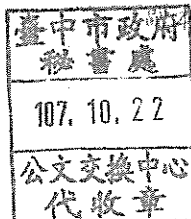 臺中市政府
秘書處
107. 10. 22
公文交換中心
代收章